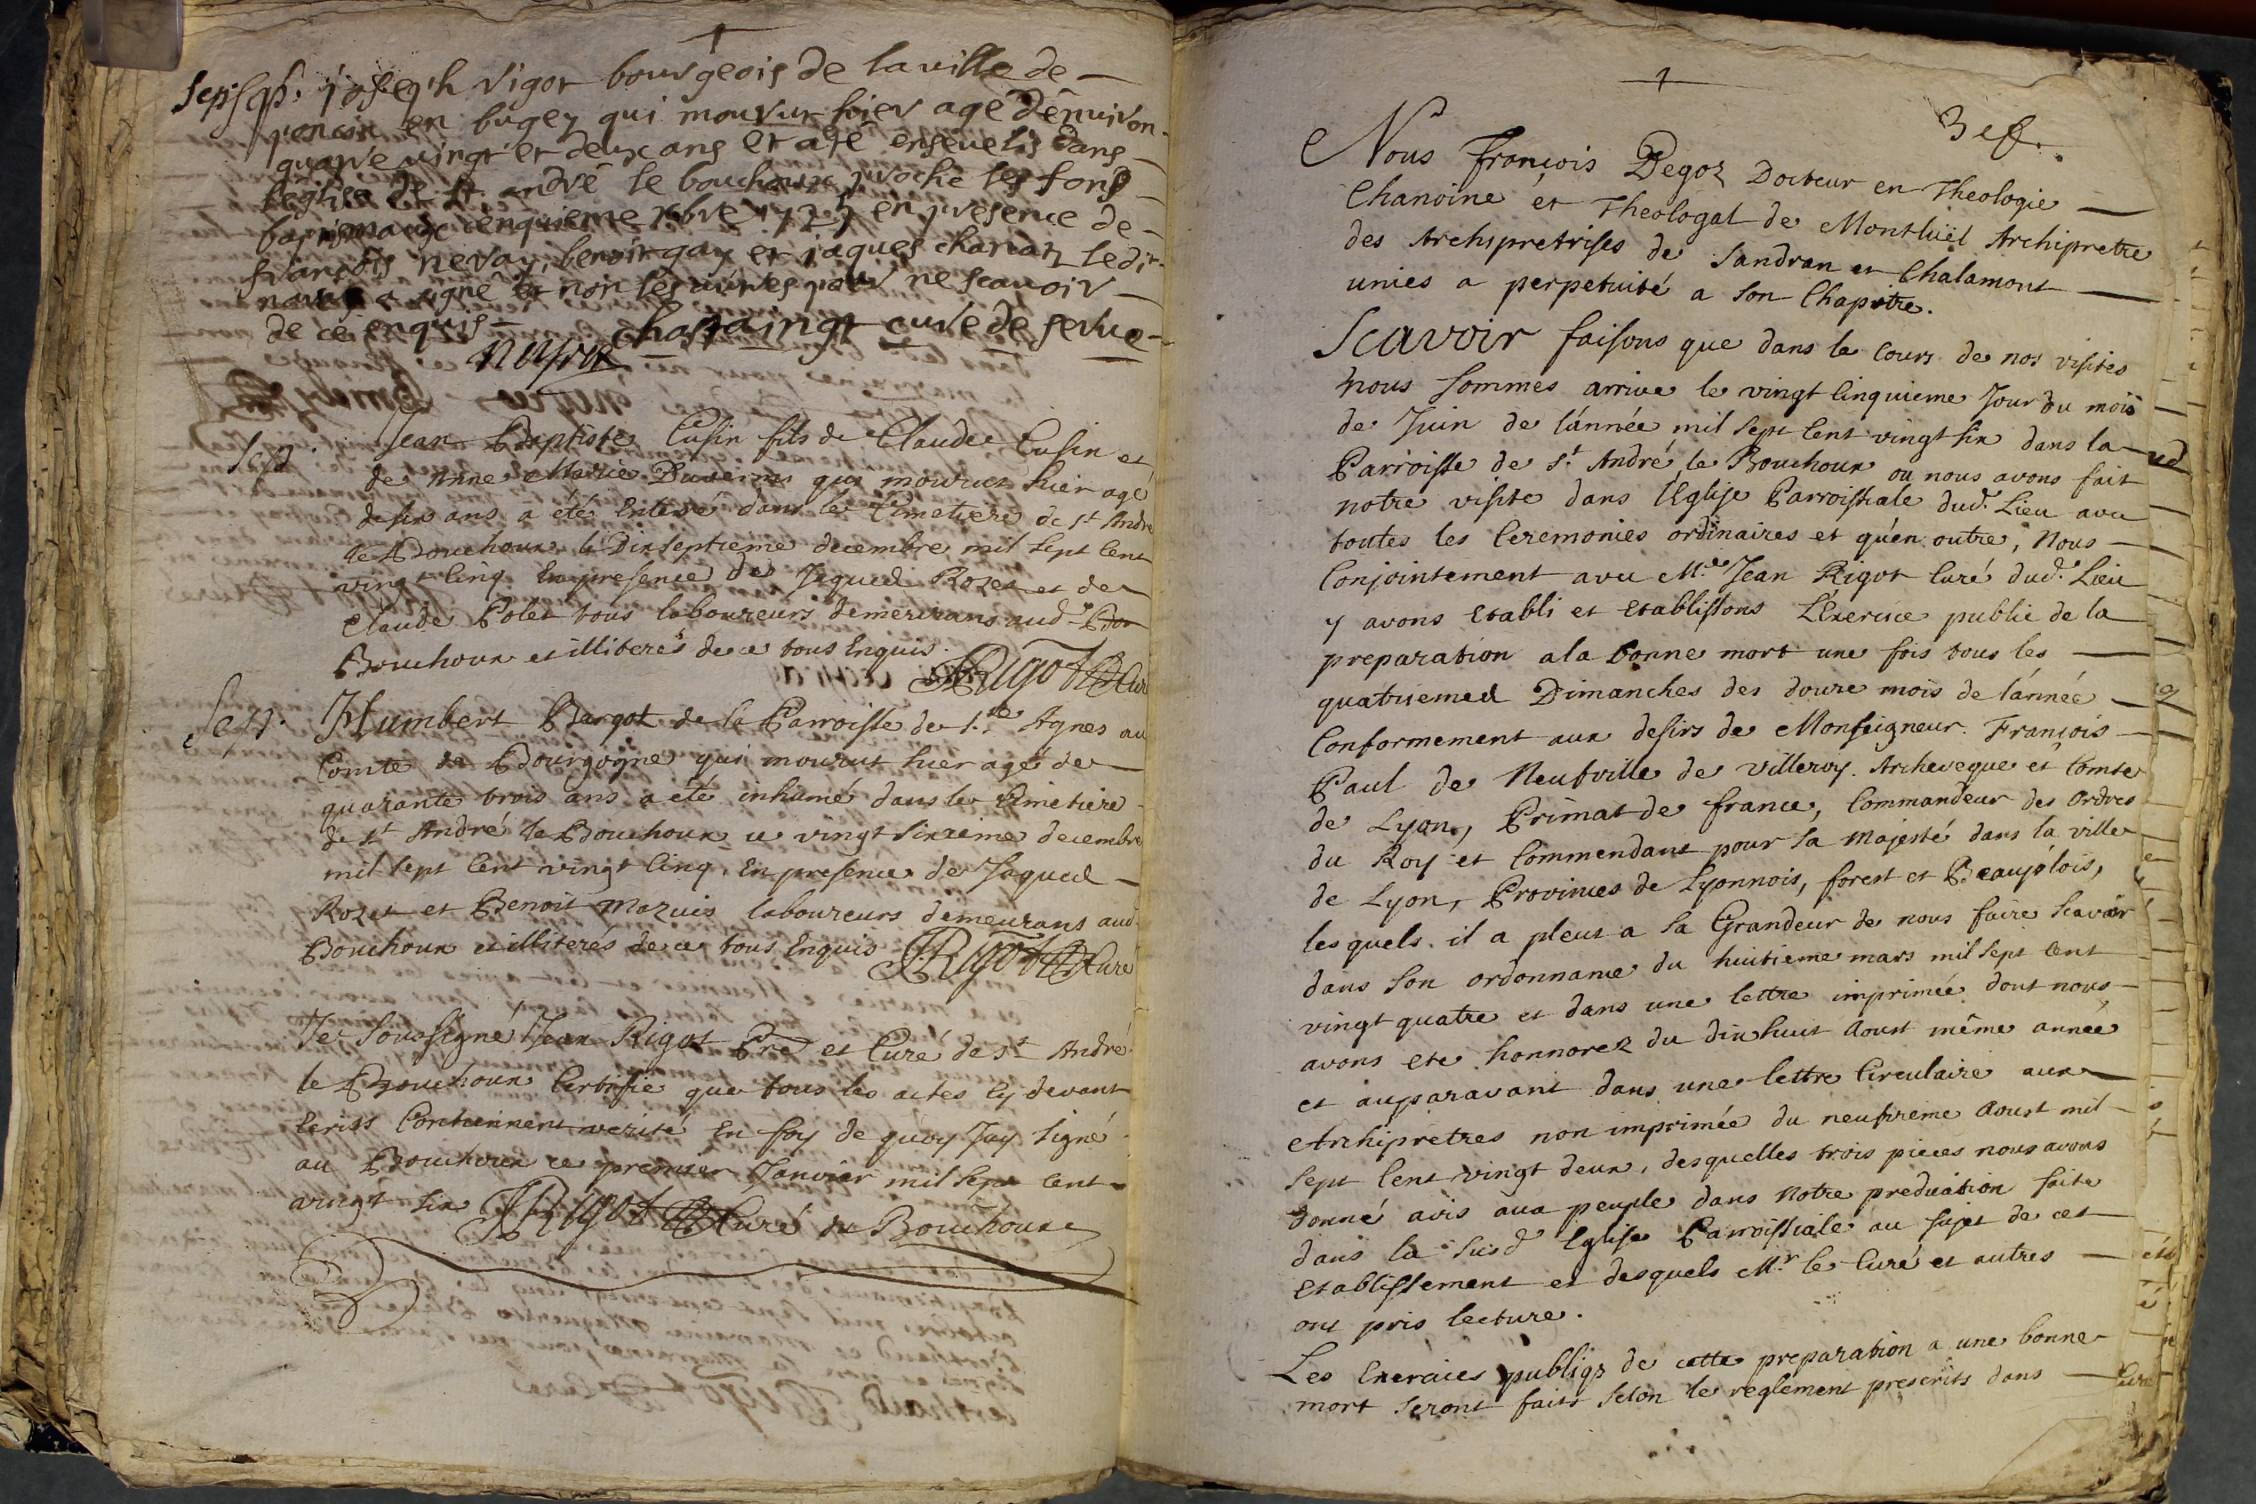 joseph Vigot bourgeois de la ville de
en bugey qui mourut hier agé d'environ
quatre vingt et deux ans et a été enseuelis dans
l'eglise de st andré le bouchoux proche les fons
baptismaux cinquieme 1725 en presence de
françois nevoz, benoit gay et jaques ledit
a signé et non les autres pour ne scavoir
de ce enquis curé de
Jean Baptiste Cusin fils de Claude Cusin et
de Anne Marie qui mourut hier agé
de six ans a été Enterré dans le Cimetiere de st André
le Bouchoux le Dixseptieme decembre mil sept Cent
vingt Cinq En presence de Jaques Rozet et de
Claude Polet tous laboureurs demeurans aud.
Bouchoux et illiterés de ce tous Enquis.
JRigot Curé
Sep. Humbert Bargot de la Parroisse de Ste Agnes au
Comte de Bourgogne qui mourut hier agé de
quarante trois ans a eté inhumé dans le Cimetiere
de st André le Bouchoux ce vingt sixieme decembre
mil sept Cent vingt Cinq. En presence de Jaques
Rozet et Benoit Mazuis laboureurs demeurans aud.
Bouchoux et illiterés de ce tous Enquis JRigot Curé
Je soussigné Jean Rigot Pre et Curé de st André
le Bouchoux Certifie que tous les actes Cy devant
Ecrits Contiennent verité En foy de quoy Jay signé
au Bouchoux ce premier Janvier mil sept Cent
vingt six JRigot Curé du Bouchoux
Nous François Degoz Docteur en Theologie
Chanoine et Theologal de Montluël Archipretre
des Archipretrises de Sandran et Chalamont
unies a perpetuité a son Chapitre.
Scavoir faisons que dans le Cours de nos visites
nous sommes arrive le vingt Cinquieme Jour du mois
de Juin de l'année mil sept Cent vingt six dans la
Parroisse de St André le Bouchoux ou nous avons fait
notre visite dans l'Eglise Parroissiale dud. Lieu avec
toutes les Ceremonies ordinaires et qu'en outre, Nous
Conjointement avec Mre Jean Rigot Curé dud. Lieu
y avons Etabli et Etablissons L'Exercice public de la
preparation a la bonne mort une fois tous les
quatriemes Dimanches des douze mois de l'année
Conformement aux desirs de Monseigneur François
Paul de Neufville de Villeroy. Archeveque et Comte
de Lyon, Primat de France, Commandeur des Ordres
du Roy et Commendant pour sa Majesté dans la ville
de Lyon, Provinces de Lyonnois, forest et Beaujolois,
lesquels il a pleut a sa Grandeur de nous faire scavoir
dans son ordonnance du huitieme mars mil sept Cent
vingt quatre et dans une lettre imprimée dont nous
avons ete honnorez du dixhuit Aoust même année
et auparavant dans une lettre Circulaire aux
Archipretres non imprimée du neufvieme Aoust mil
sept Cent vingt deux, desquelles trois pieces nous avons
donné avis aux peuple dans Notre predication faite
dans la susd. Eglise Parroissiale au sujet de cet
Etablissement et desquels Mr le Curé et autres
ont pris lecture.
Les Exercices publiqs de cette preparation a une bonne
mort seront faits selon le reglement prescrits dans